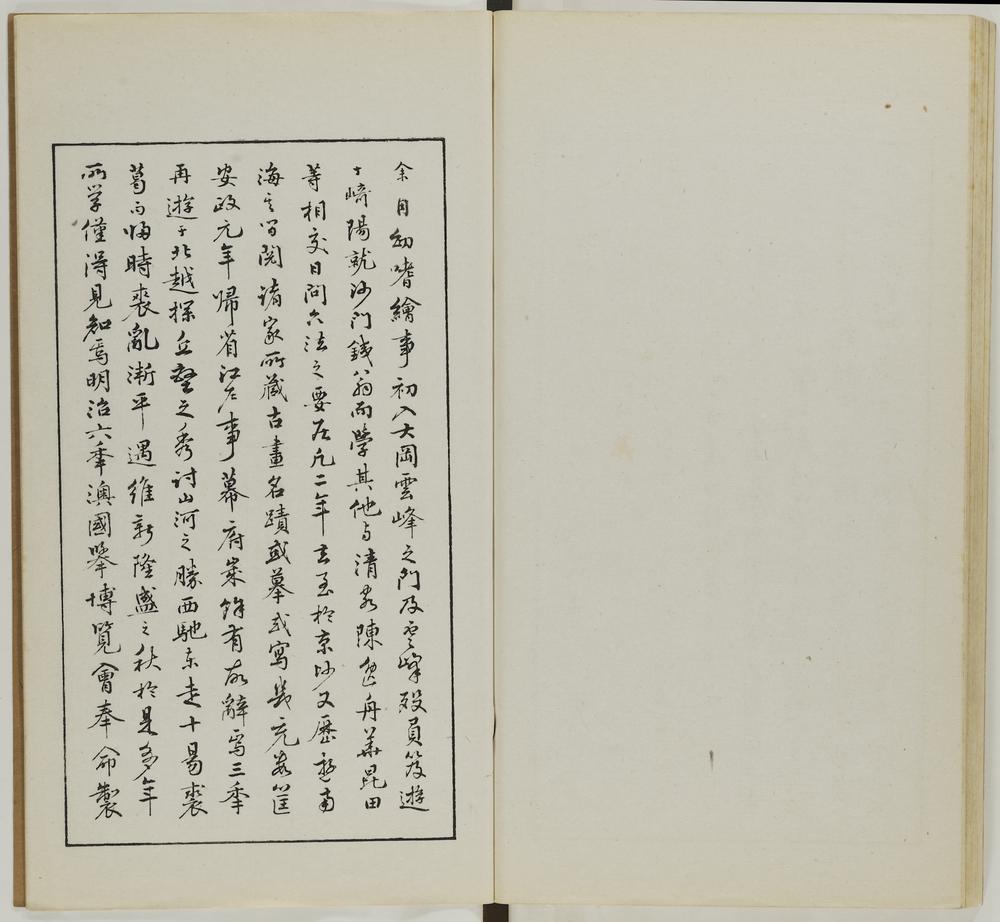 余自幼嗜繪事初入大岡雲峰之門及雲峰歿負笈遊
于崎陽就沙门鐵翁而學其他与清客陳逸舟華昆田
等相交日问六法之要居凡二年去至於京師又歴遊南
海之间閲諸家所藏古畫名蹟或摹或寫幾充數筐
安政元年帰省江户事幕府葉餘有故辭焉三年
再遊于北越探丘壑之秀討山河之勝西馳东走十易裘
葛而歸時丧亂漸平遇維新隆盛之秋於是多年
所学僅得見知焉明治六年澳國挙博覧會奉命製